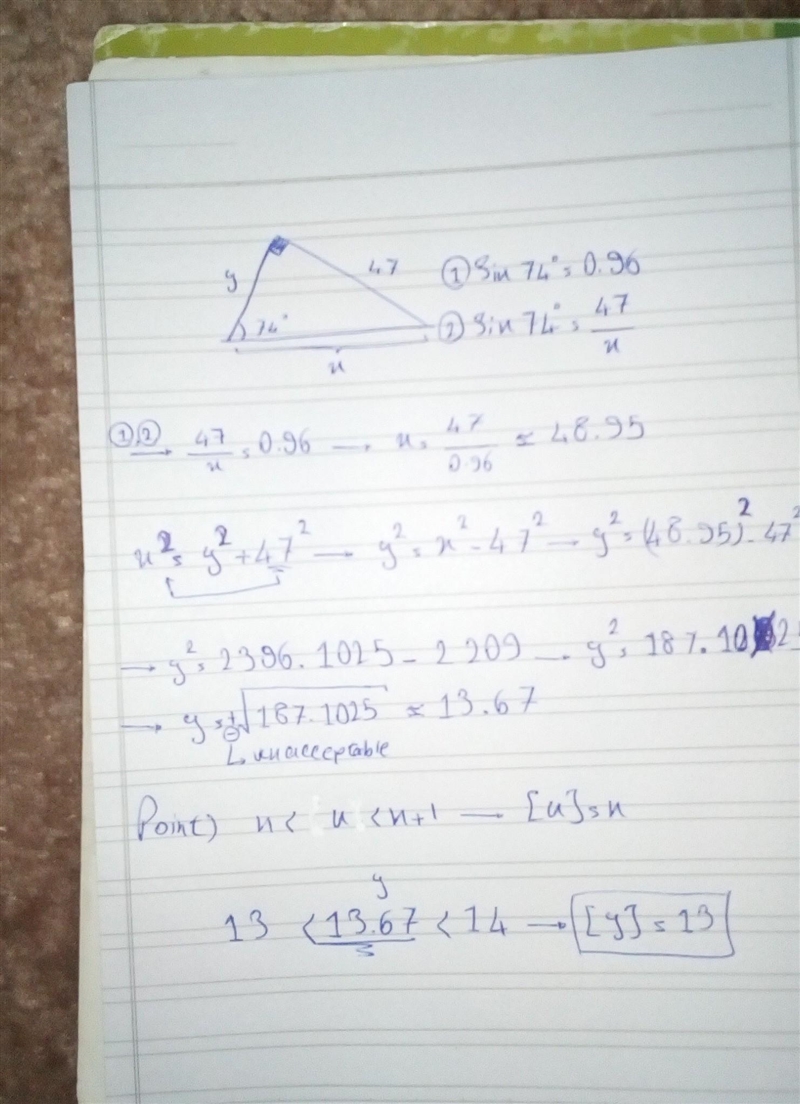 y 47 ① Sin 74° = 0.96
74° ② Sin 74° = 47/x
x
①,② → 47/x = 0.96 → x = 47/0.96 ≈ 48.95
x² = y² + 47² → y² = x² - 47² → y² = (48.95)² - 47²
→ y² = 2396.1025 - 2209 → y² = 187.1025
→ y = ±√187.1025 ≈ 13.67
↳ unacceptable
Point) n < x < n+1 → [x] = n
y
13 < 13.67 < 14 → [y] = 13